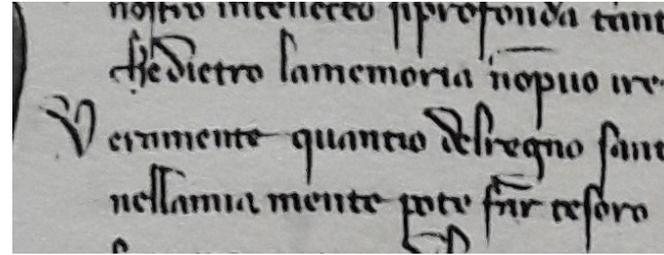 nostro intellecto si profonda tant
che dietro la memoria nõ puo ire
Veramente quantio del regno sant
nella mia mente pote far tesoro